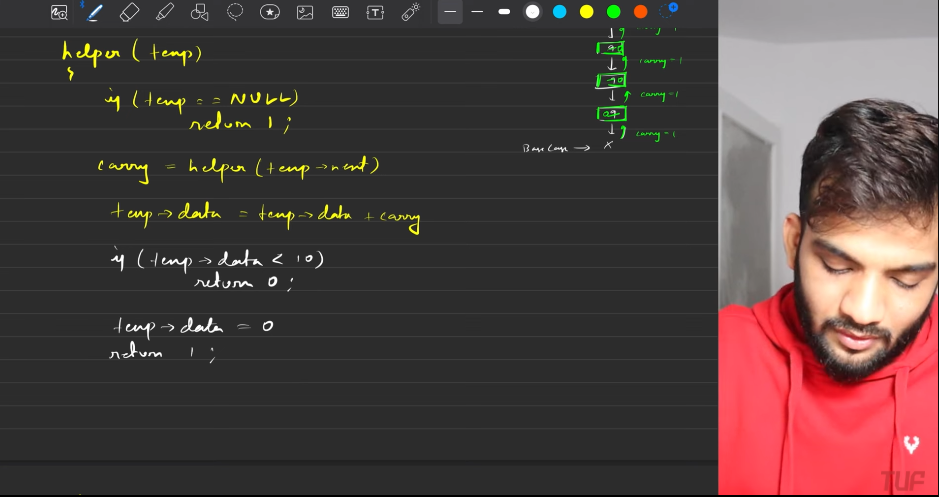 helper (temp)
{
if (temp == NULL)
return 1;
carry = helper (temp→next)
temp→data = temp→data + carry
if (temp→data < 10)
return 0;
temp→data = 0
return 1;
carry=1
carry=1
carry=1
Base Case → X
TUF